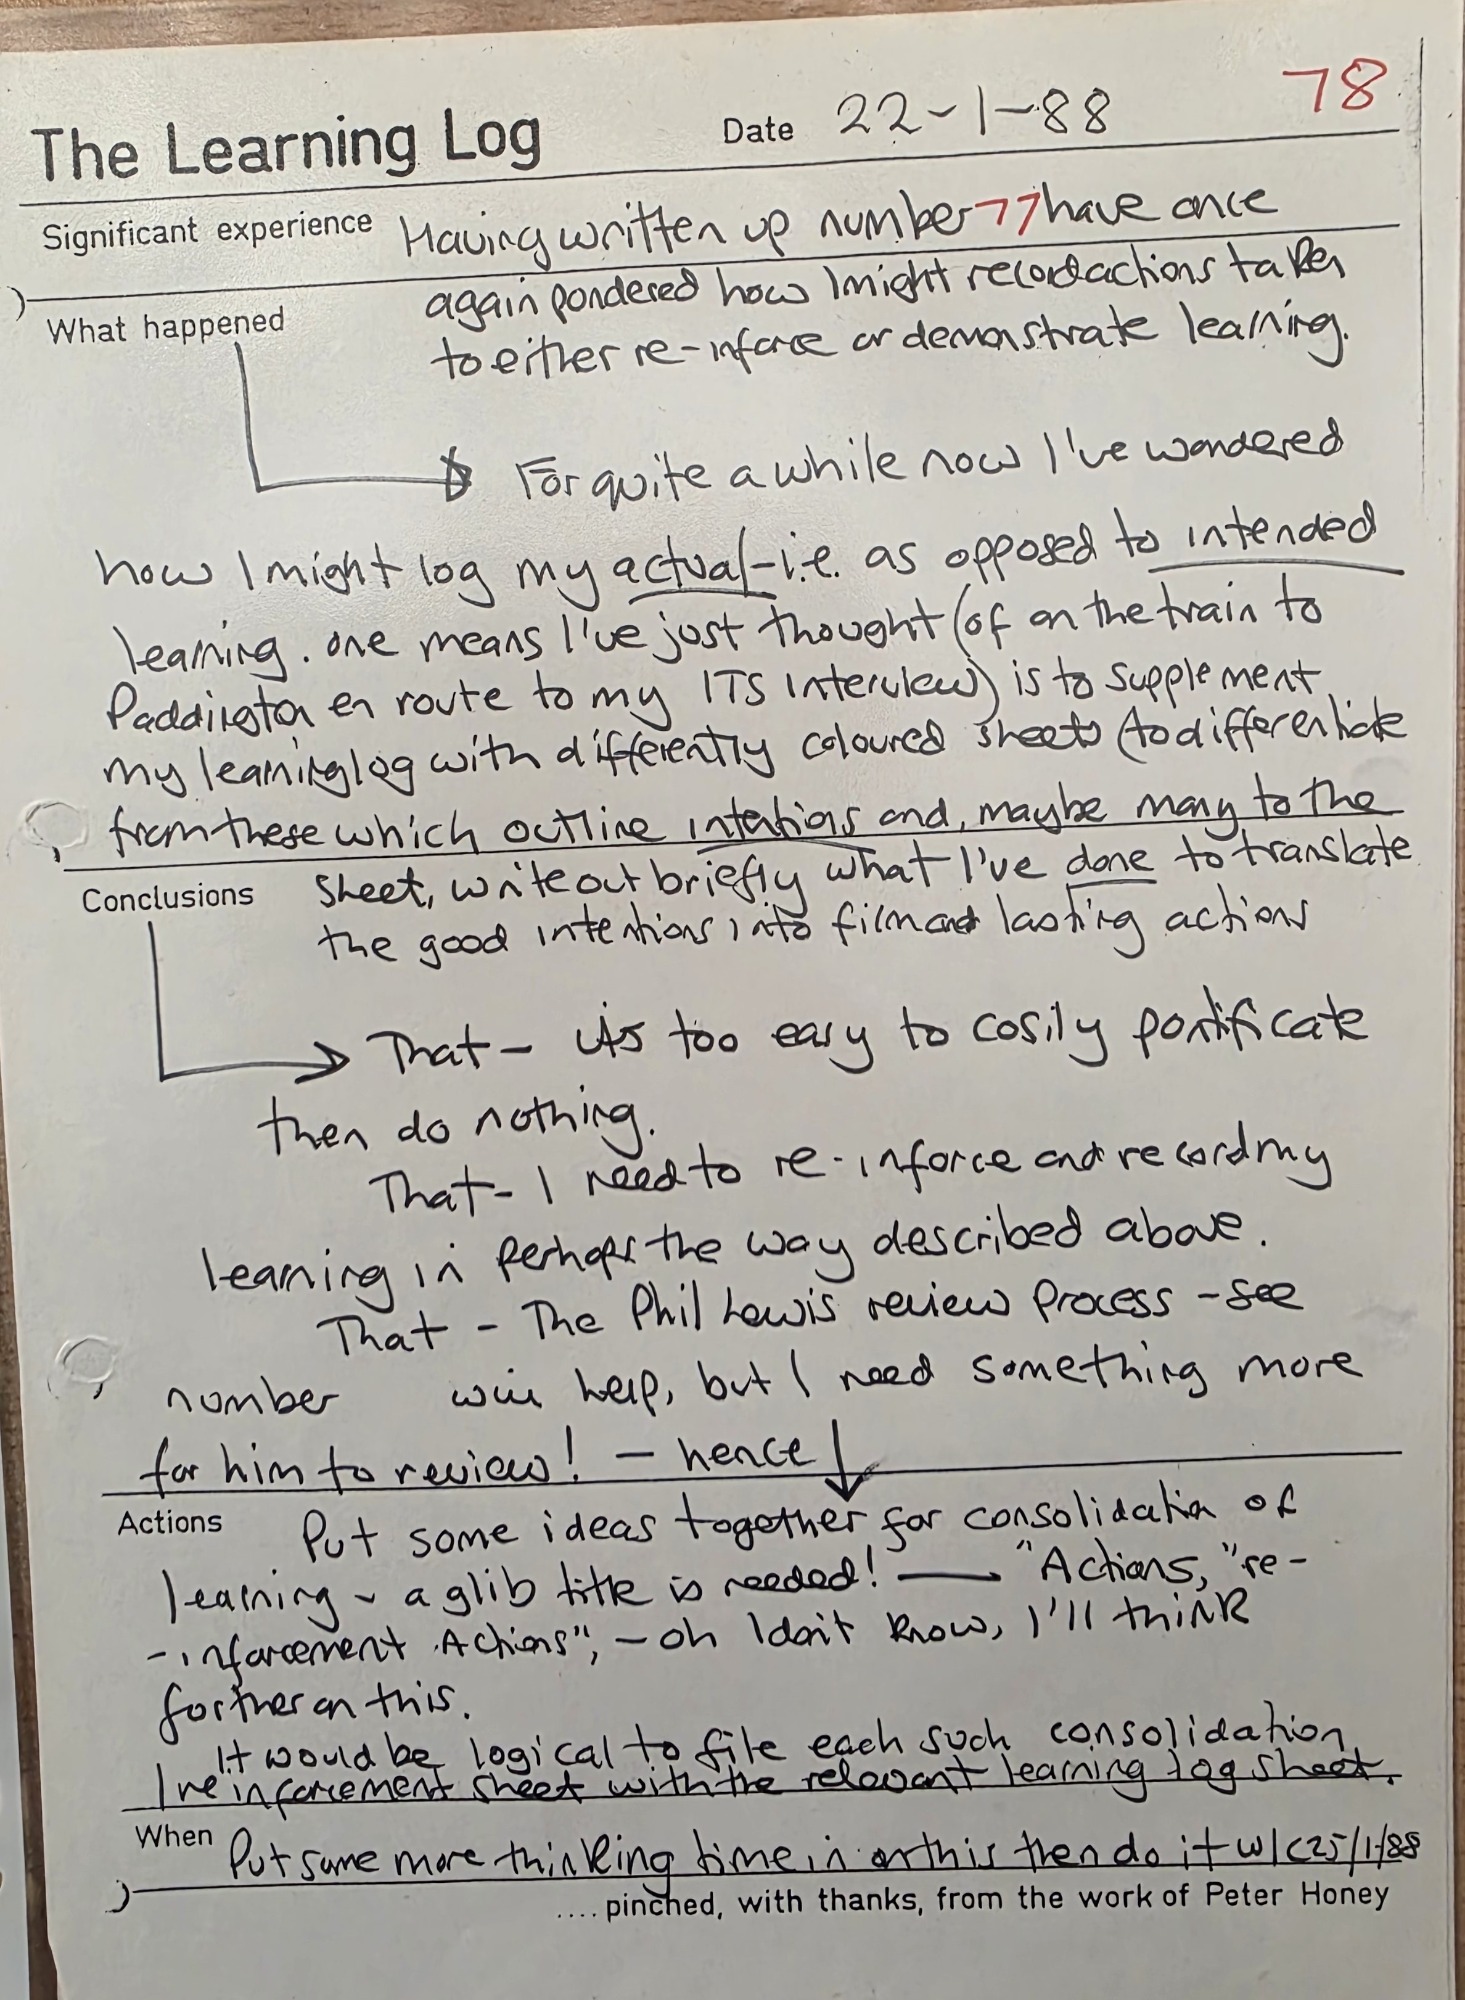 78
The Learning Log Date 22-1-88
Significant experience Having written up number 77 have once
again pondered how I might record actions taken
What happened
to either re-inforce or demonstrate learning.
For quite a while now I've wondered
how I might log my actual - i.e. as opposed to intended
learning. one means I've just thought (of on the train to
Paddington en route to my ITS interview) is to supplement
my learning log with differently coloured sheets (to differentiate
from these which outline intentions and, maybe many to the
Conclusions sheet, write out briefly what I've done to translate
the good intentions into film and lasting actions
That - it's too easy to cosily pontificate
then do nothing.
That - I need to re-inforce and record my
learning in perhaps the way described above.
That - The Phil Lewis review process - see
number will help, but I need something more
for him to review! - hence
Actions Put some ideas together for consolidation of
learning - a glib title is needed! — "Actions, "re-
-inforcement Actions", - oh I don't know, I'll think
further on this.
It would be logical to file each such consolidation
/reinforcement sheet with the relevant learning log sheet.
When Put some more thinking time in on this then do it w/c 25/1/88
.... pinched, with thanks, from the work of Peter Honey